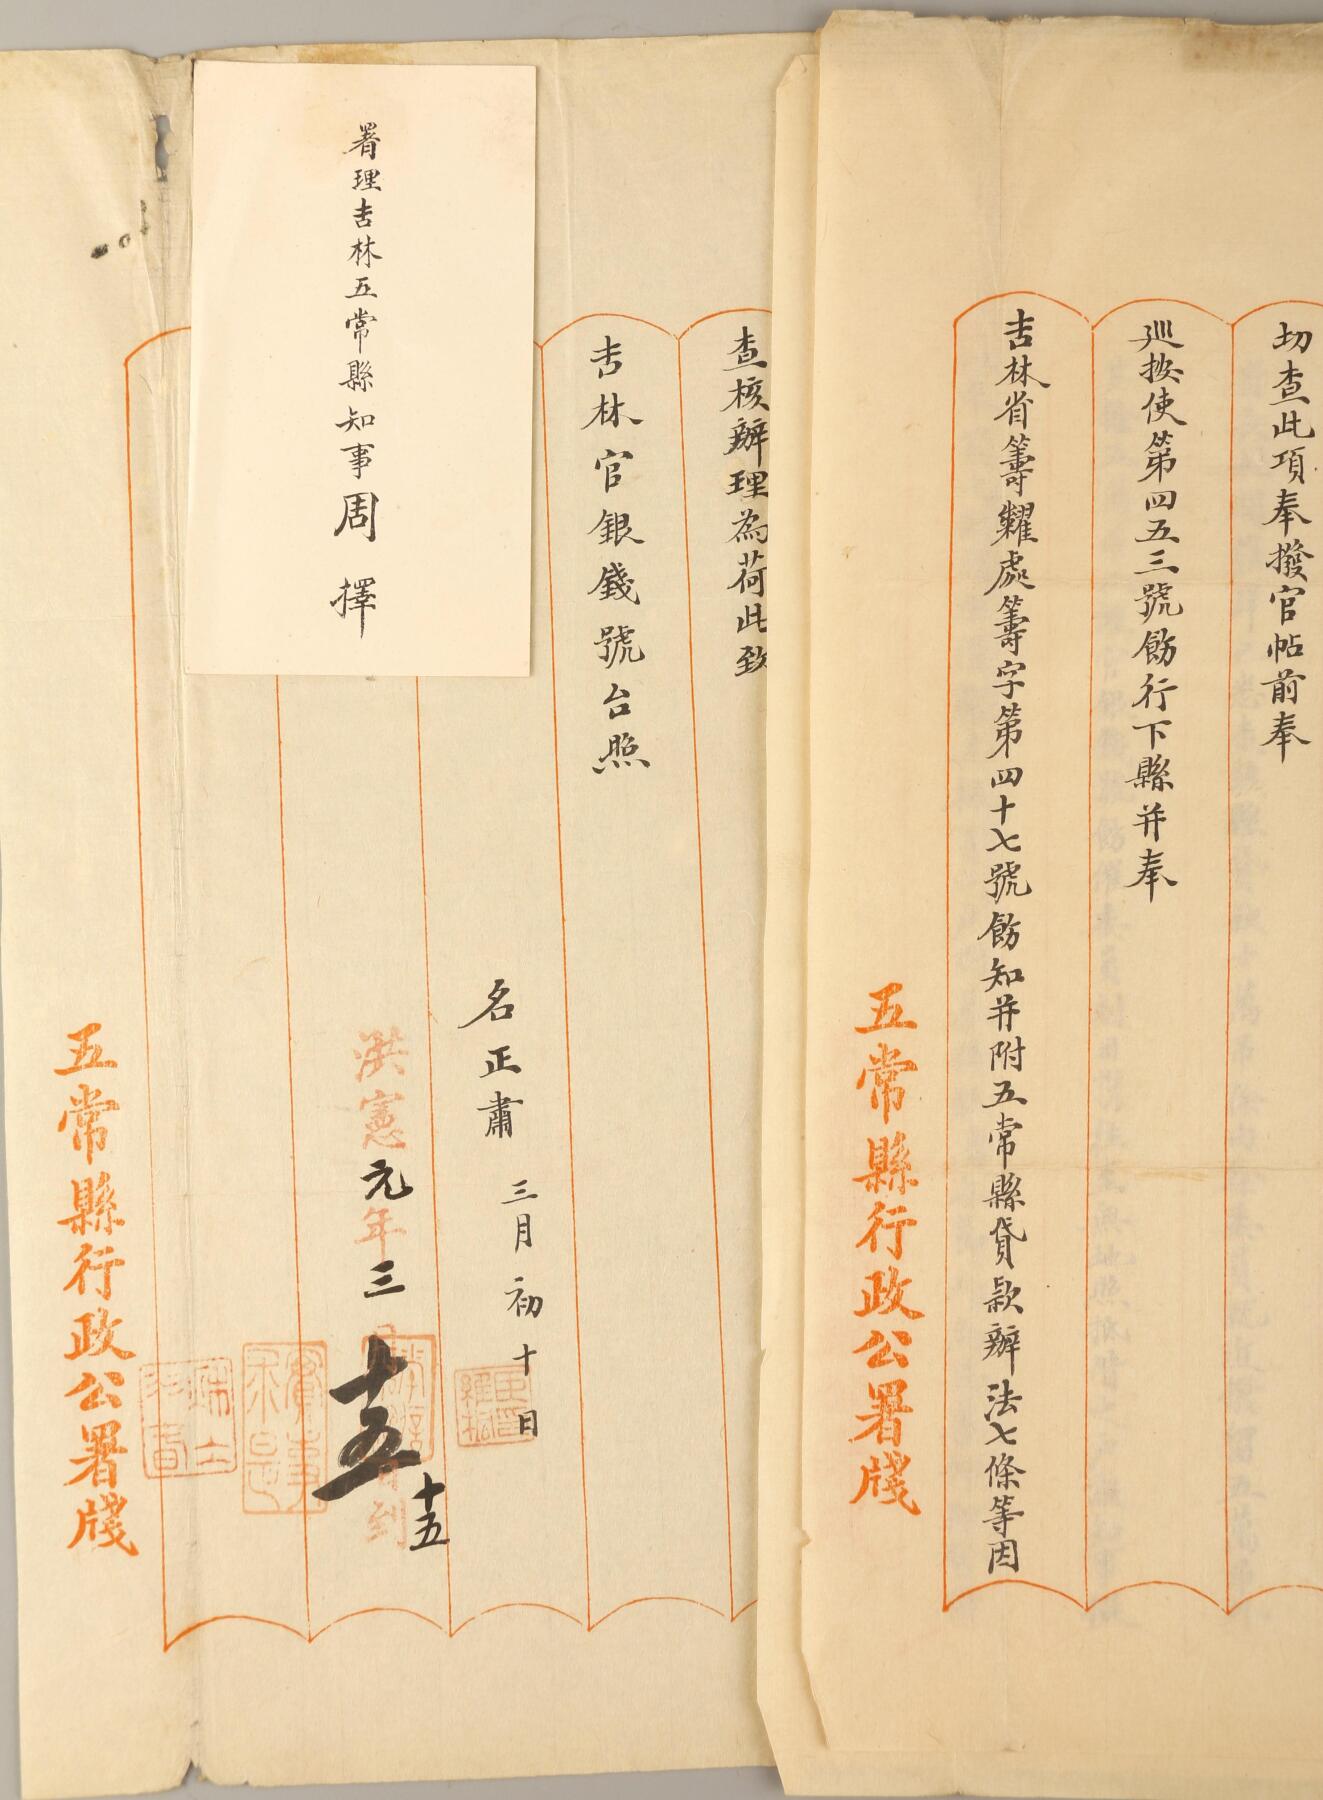 切查此項奉撥官帖前奉
巡按使第四五三號飭行下縣并奉
吉林省籌糶處籌字第四十七號飭知并附五常縣貸款辦法七條等因
五常縣行政公署牋
查核辦理為荷此致
吉林官銀錢號台照
名正肅 三月初十日
洪憲元年三月十五日到
十五
署理吉林五常縣知事周擇
五常縣行政公署牋